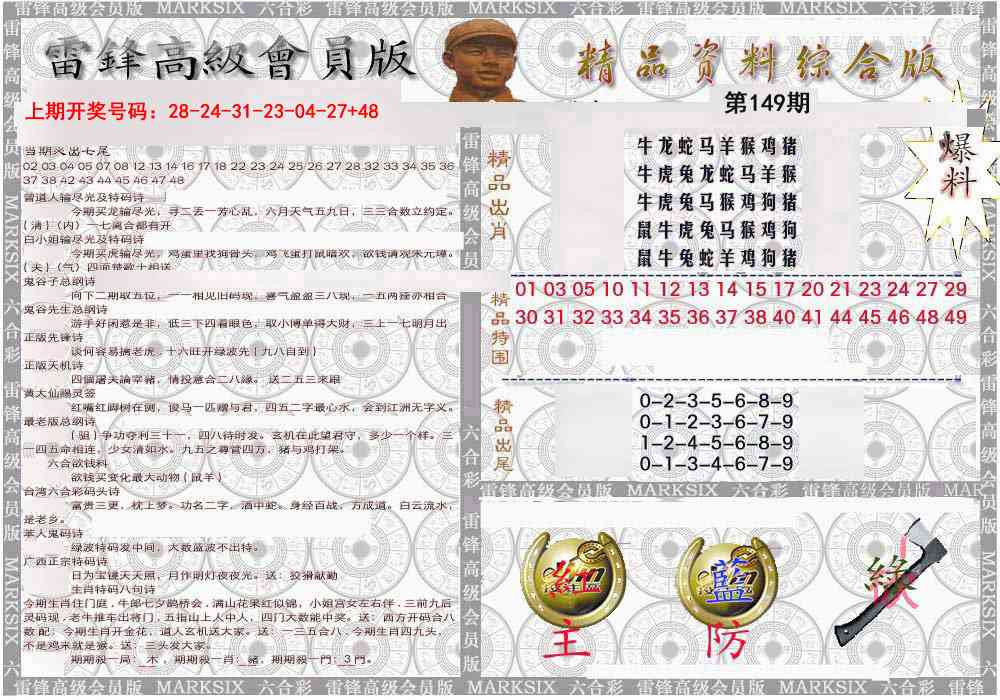 雷锋高级会员版 MARKSIX 六合彩 雷锋高级会员版 MARKSIX 六合彩 雷锋高级会员版 MARKSIX 六合彩 雷锋
雷鋒高級會員版
精品资料综合版
第149期
上期开奖号码：28-24-31-23-04-27+48
爆料
当期奖出七尾
02 03 04 05 07 08 12 13 14 16 17 18 22 23 24 25 26 27 28 32 33 34 35 36
37 38 42 43 44 45 46 47 48
曾道人输尽光及特码诗
今期买龙输尽光，寻二丢一芳心乱，六月天气五九日，三三合数立约定。
(清)(内)一七离合都有开
白小姐输尽光及特码诗
今期买虎输尽光，鸡蛋里找狗骨头，鸡飞蛋打鼠暗欢，欲钱请观朱元璋。
(夫)(气)四面楚歌十相送
鬼谷子总纲诗
向下二期取五位，一一相见旧码现，喜气盈盈三八现，一五两连亦相合
鬼谷先生总纲诗
游手好闲惹是非，低三下四看眼色，取小博单得大财，三上一七明月出
正版先锋诗
谈何容易擒老虎，十六旺开绿波先(九八自到)
正版天机诗
四個屠夫論宰豬，情投意合二八緣。送二五三来跟
黄大仙賜灵签
红嘴红脚树在侧，俊马一匹赠与君，四五二字最心水，会到江洲无字义。
最老版总纲诗
(诅)争功夺利三十一，四八待时发。玄机在此望君守，多少一个样。三
一四五命相连，少女清如水。九五之尊管四方，猪与鸡打架。
六合欲钱料
欲钱买变化最大动物(鼠羊)
台湾六合彩码头诗
富贵三更，枕上梦。功名二字，酒中蛇。身经百战，方成道。白云流水，
是老乡。
本人鬼码诗
绿波特码发中间，大数蓝波不出特。
广西正宗特码诗
日为宝镜天天照，月作明灯夜夜光。送：狡猾献勤
生肖特码八句诗
今期生肖住门庭，牛郎七夕鹊桥会，满山花果红似锦，小姐宫女左右伴，三前九后
灵码现，老牛推车出将门，五指山上人中人，四门大数能中奖。送：西方开码合八
数配；今期生肖开金花，道人玄机送大家。送：一三五合八，今期生肖四九头，
不是鸡来就是猴。送：三头发大家。
期期殺一局：木，期期殺一肖：豬，期期殺一門：3門。
精品出肖
牛龙蛇马羊猴鸡猪
牛虎兔龙蛇马羊猴
牛虎兔马猴鸡狗猪
鼠牛虎兔马猴鸡狗
鼠牛兔蛇羊鸡狗猪
精品特围
01 03 05 10 11 12 13 14 15 17 20 21 23 24 27 29
30 31 32 33 34 35 36 37 38 40 41 44 45 46 48 49
精品出尾
0-2-3-5-6-8-9
0-1-2-3-6-7-9
1-2-4-5-6-8-9
0-1-3-4-6-7-9
雷锋高级会员版 MARKSIX 六合彩 雷锋高级会员版 MAR
紅
主
藍
防
綠
雷锋高级会员版 MARKSIX 六合彩 雷锋高级会员版 MARKSIX 六合彩 雷锋高级会员版 MARKSIX 六合彩 雷锋